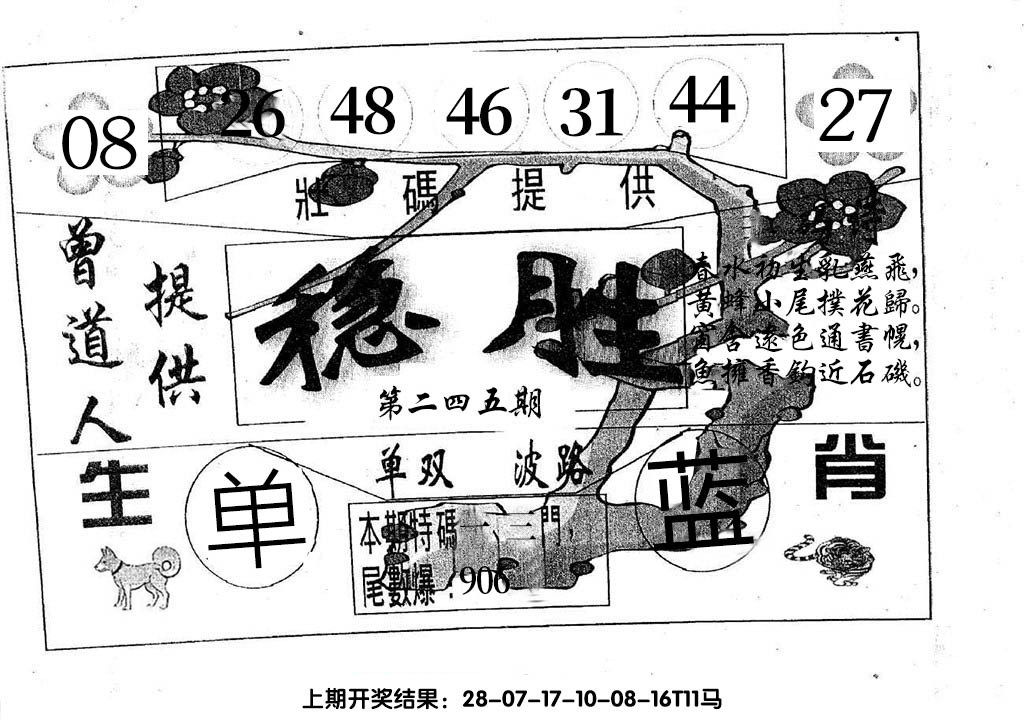 08 26 48 46 31 44 27
壯碼提供
曾道人
提供
稳胜
第二四五期
春水初生乳燕飛，
黃蜂小尾撲花歸。
窗含遠色通書幌，
魚擁香鈎近石磯。
单双 波路
生肖
单
蓝
本期特碼一、三門，
尾數爆：906
上期开奖结果：28-07-17-10-08-16T11马